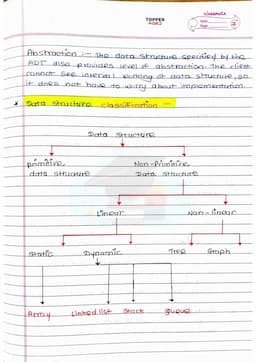 TOPPER
classmate
Date
Page
Abstraction :- The data structure specified by the
ADT also provides level of abstraction. The client
cannot see internal working of data structure, so
it does not have to worry about implementation.
* Data Structure classification :-
Data Structure
primitive Non-Primitive
data structure Data Structure
Linear Non-linear
Static Dynamic Tree Graph
Array Linked list Stack Queue